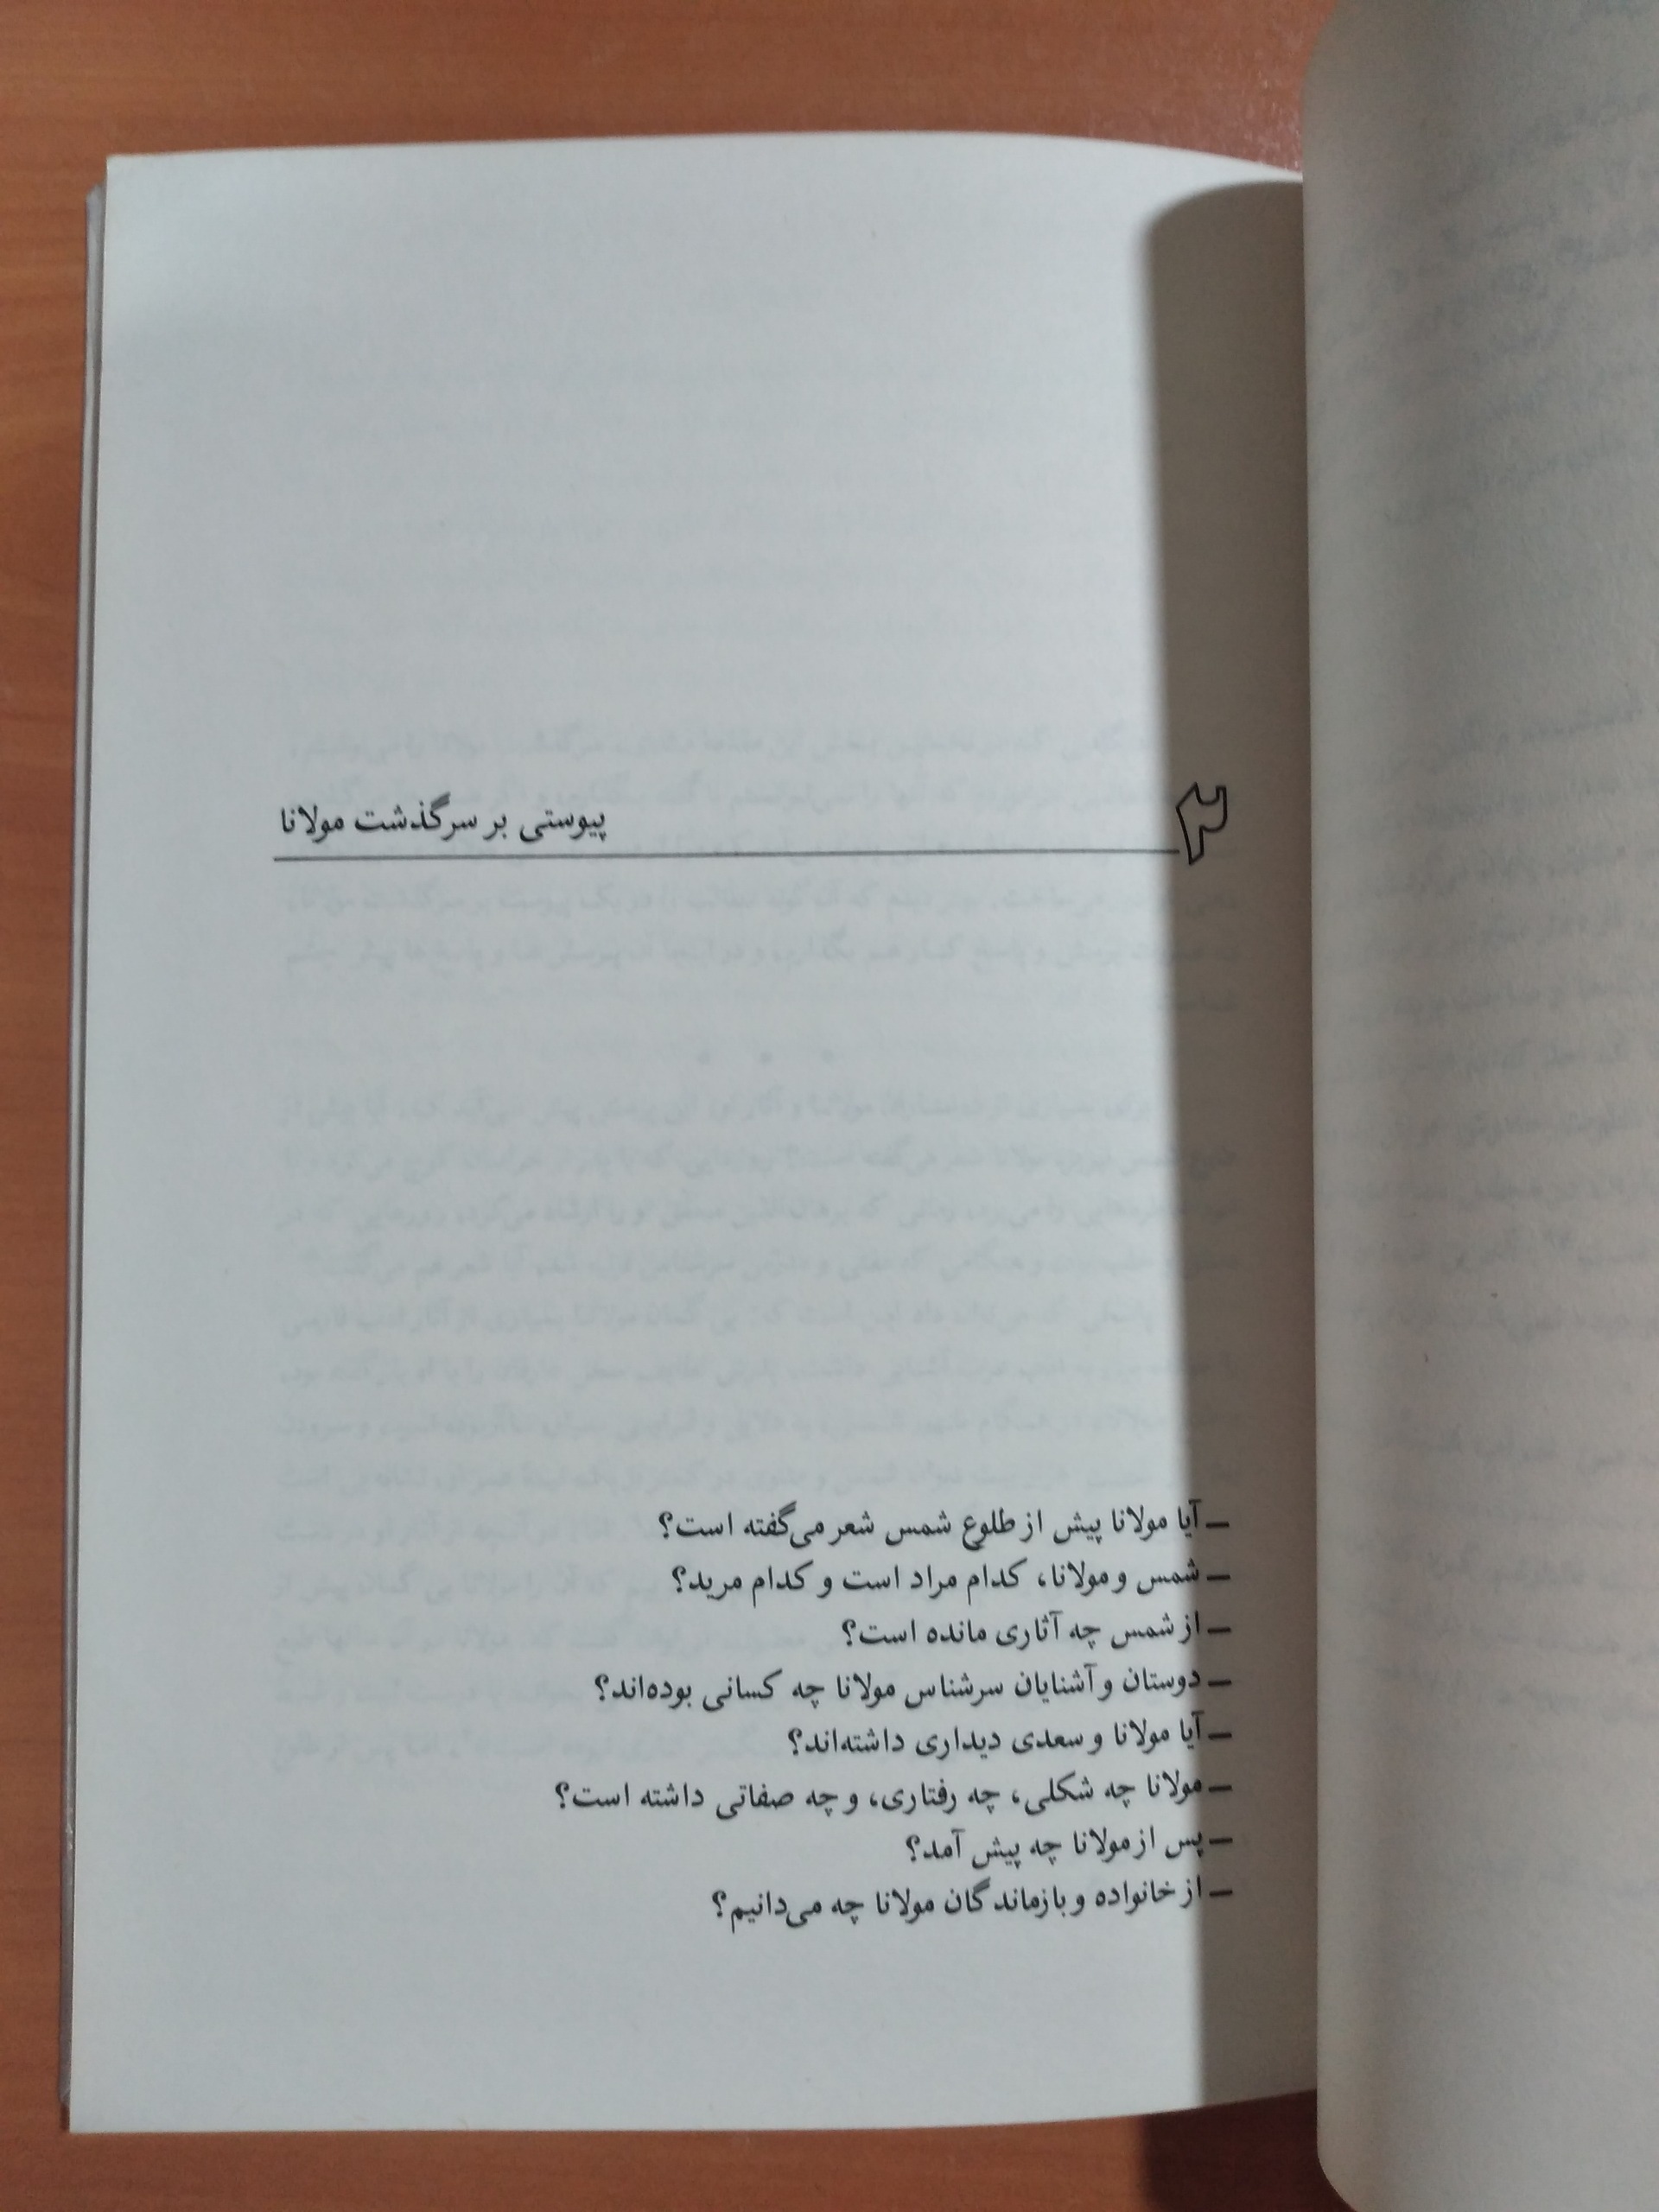 ۲
پیوستی بر سرگذشت مولانا
ــ آیا مولانا پیش از طلوع شمس شعر می‌گفته است؟
ــ شمس و مولانا، کدام مراد است و کدام مرید؟
ــ از شمس چه آثاری مانده است؟
ــ دوستان و آشنایان سرشناس مولانا چه کسانی بوده‌اند؟
ــ آیا مولانا و سعدی دیداری داشته‌اند؟
ــ مولانا چه شکلی، چه رفتاری، و چه صفاتی داشته است؟
ــ پس از مولانا چه پیش آمد؟
ــ از خانواده و بازماندگان مولانا چه می‌دانیم؟